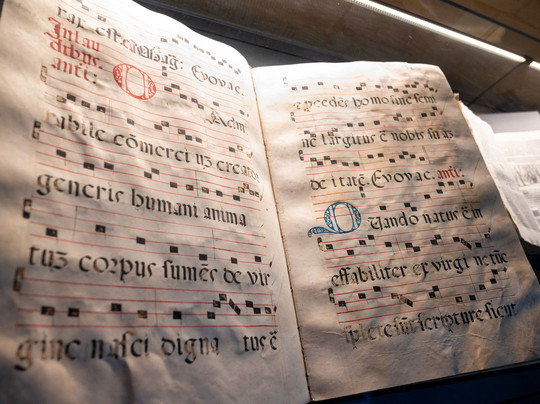 Evovae.
In lau
dibus.
antī:
O Admi
rabile cōmerci uȝ creator
generis humani anima
tuȝ corpus sumēs de vir
gine nasci digna tus ē
procedēs homo sine semi
ne largitus ē nobis suaȝ
de i tatē. Evovae. antī:
Quando natus ē in
effabiliter ex virgi ne tūc
sūt scripture sicut